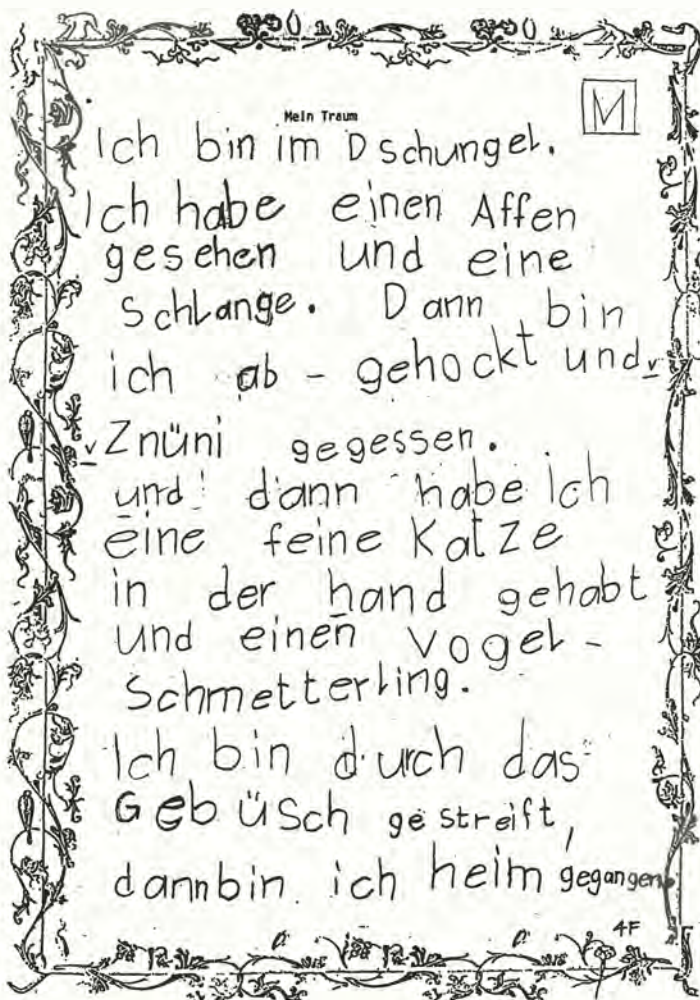 Mein Traum
M
Ich bin im Dschungel.
Ich habe einen Affen
gesehen und eine
Schlange. Dann bin
ich ab - gehockt und
Znüni gegessen.
und dann habe ich
eine feine Katze
in der hand gehabt
und einen Vogel-
Schmetterling.
Ich bin durch das
Gebüsch gestreift,
dannbin ich heim gegangen.
4F